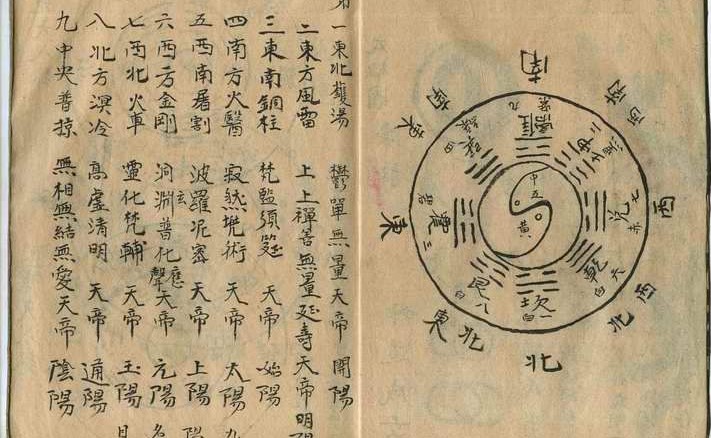 一東北鑊湯 鬱單無量天帝 開陽
二東方風雷 上上禪善無量延壽天帝 明
三東南銅柱 梵監須筵 天帝 始陽
四南方火醫 寂然兜術 天帝 太陽 九
五西南屠割 波羅尼蜜 天帝 上陽 陽
六西方金剛 洞玄淵普化應聲天帝 元陽 名
七西北火車 靈化梵輔 天帝 玉陽
八北方溟冷 高虛清明 天帝 通陽
九中央普掠 無相無結無愛天帝 陰陽
南
西南
西
西北
北
東北
東
東南
離 九
坤 二
兌 七赤
乾 六白
坎 一白
艮 八白
震 三
四
中五
黃